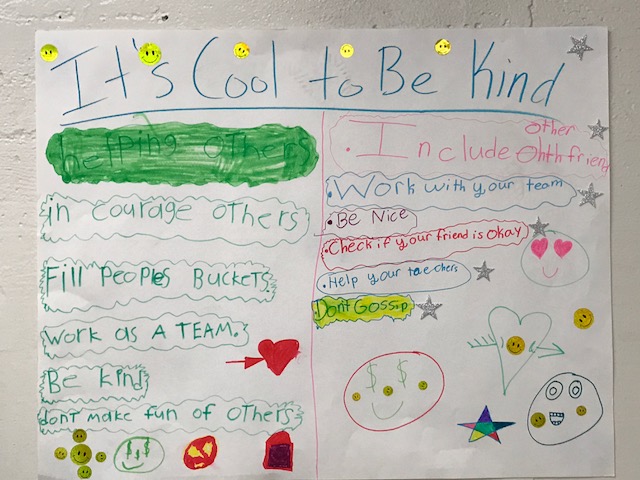 It's Cool to Be Kind
helping others
in courage others
Fill PEOPlEs BucKETs
WORK as A TEAM.
Be kind
dont make fun of OTHers
other
• Include Ohth friend
• Work with your team
• Be Nice
• Check if your friend is Okay
• Help your teachers
Dont Gossip